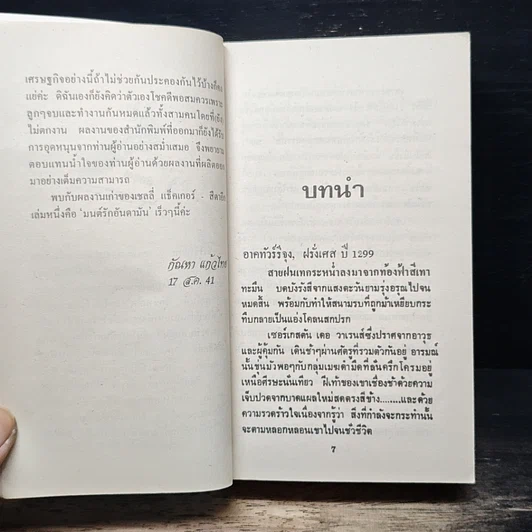 เศรษฐกิจอย่างนี้ถ้าไม่ช่วยกันประคองกันไว้บ้างก็คง
แย่ค่ะ ดิฉันเองก็ยังคิดว่าตัวเองโชคดีพอสมควรเพราะ
ลูกๆจบและทำงานกันหมดแล้วทั้งสามคนโดยที่(ยัง)
ไม่ตกงาน ผลงานของสำนักพิมพ์ที่ออกมาก็ยังได้รับ
การอุดหนุนจากท่านผู้อ่านอย่างสม่ำเสมอ จึงพยายาม
ตอบแทนน้ำใจของท่านผู้อ่านด้วยผลงานที่ผลิตออก
มาอย่างเต็มความสามารถ
พบกับผลงานเก่าของเชลลี่ แธ็คเกอร์ - สิตา
เล่มหนึ่งคือ 'มนต์รักอันดามัน' เร็วๆนี้ค่ะ
กัณหา แก้วไทย
17 ส.ค. 41
บทนำ
อาคทัวร์ริจุง, ฝรั่งเศส ปี 1299
สายฝนเทกระหน่ำลงมาจากท้องฟ้าสีเทา
ทะมึน บดบังรังสีจากแสงตะวันยามรุ่งอรุณไปจน
หมดสิ้น พร้อมกับทำให้สนามรบที่ถูกม้าเหยียบกระ
ทืบกลายเป็นแอ่งโคลนสกปรก
เซอร์เกสตัน เดอ วาเรนส์ซึ่งปราศจากอาวุธ
และผู้คุ้มกัน เดินช้าๆผ่านศัตรูที่รวมตัวกันอยู่ อารมณ์
นั้นขุ่นมัวพอๆกับกลุ่มเมฆดำมืดที่ลั่นครืกโครมอยู่
เหนือศีรษะนั่นเทียว ฝีเท้าของเขาเชื่องช้าด้วยความ
เจ็บปวดจากบาดแผลใหม่สดตรงสีข้าง........และด้วย
ความรวดร้าวใจเนื่องจากรู้ว่า สิ่งที่กำลังจะกระทำนั้น
จะตามหลอกหลอนเขาไปจนชั่วชีวิต
7